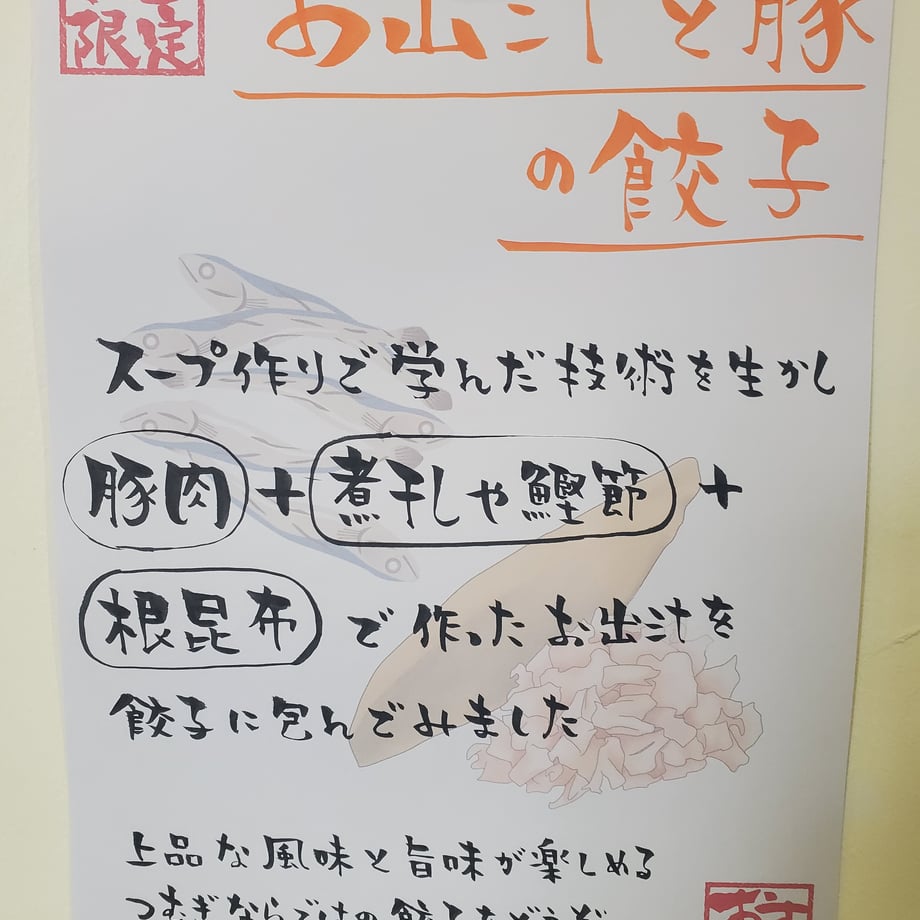 限定
お出汁と豚
の餃子
スープ作りで学んだ技術を生かし
豚肉+煮干しや鰹節+
根昆布で作ったお出汁を
餃子に包んでみました
上品な風味と旨味が楽しめる
つむぎならではの餃子をどうぞ